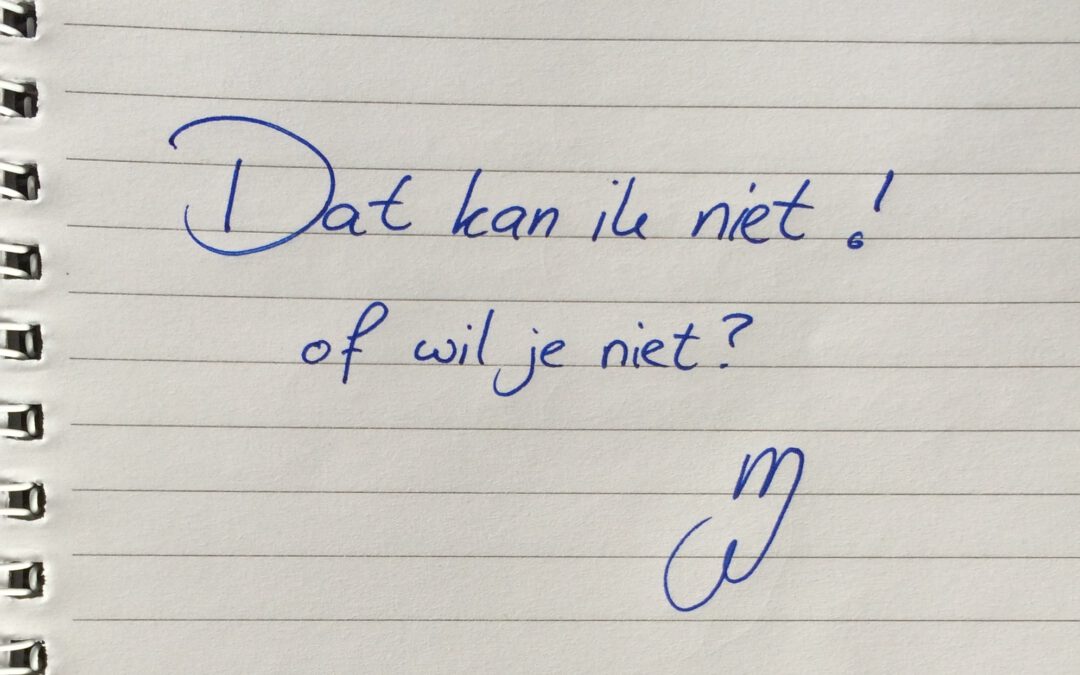 Dat kan ik niet!
of wil je niet?